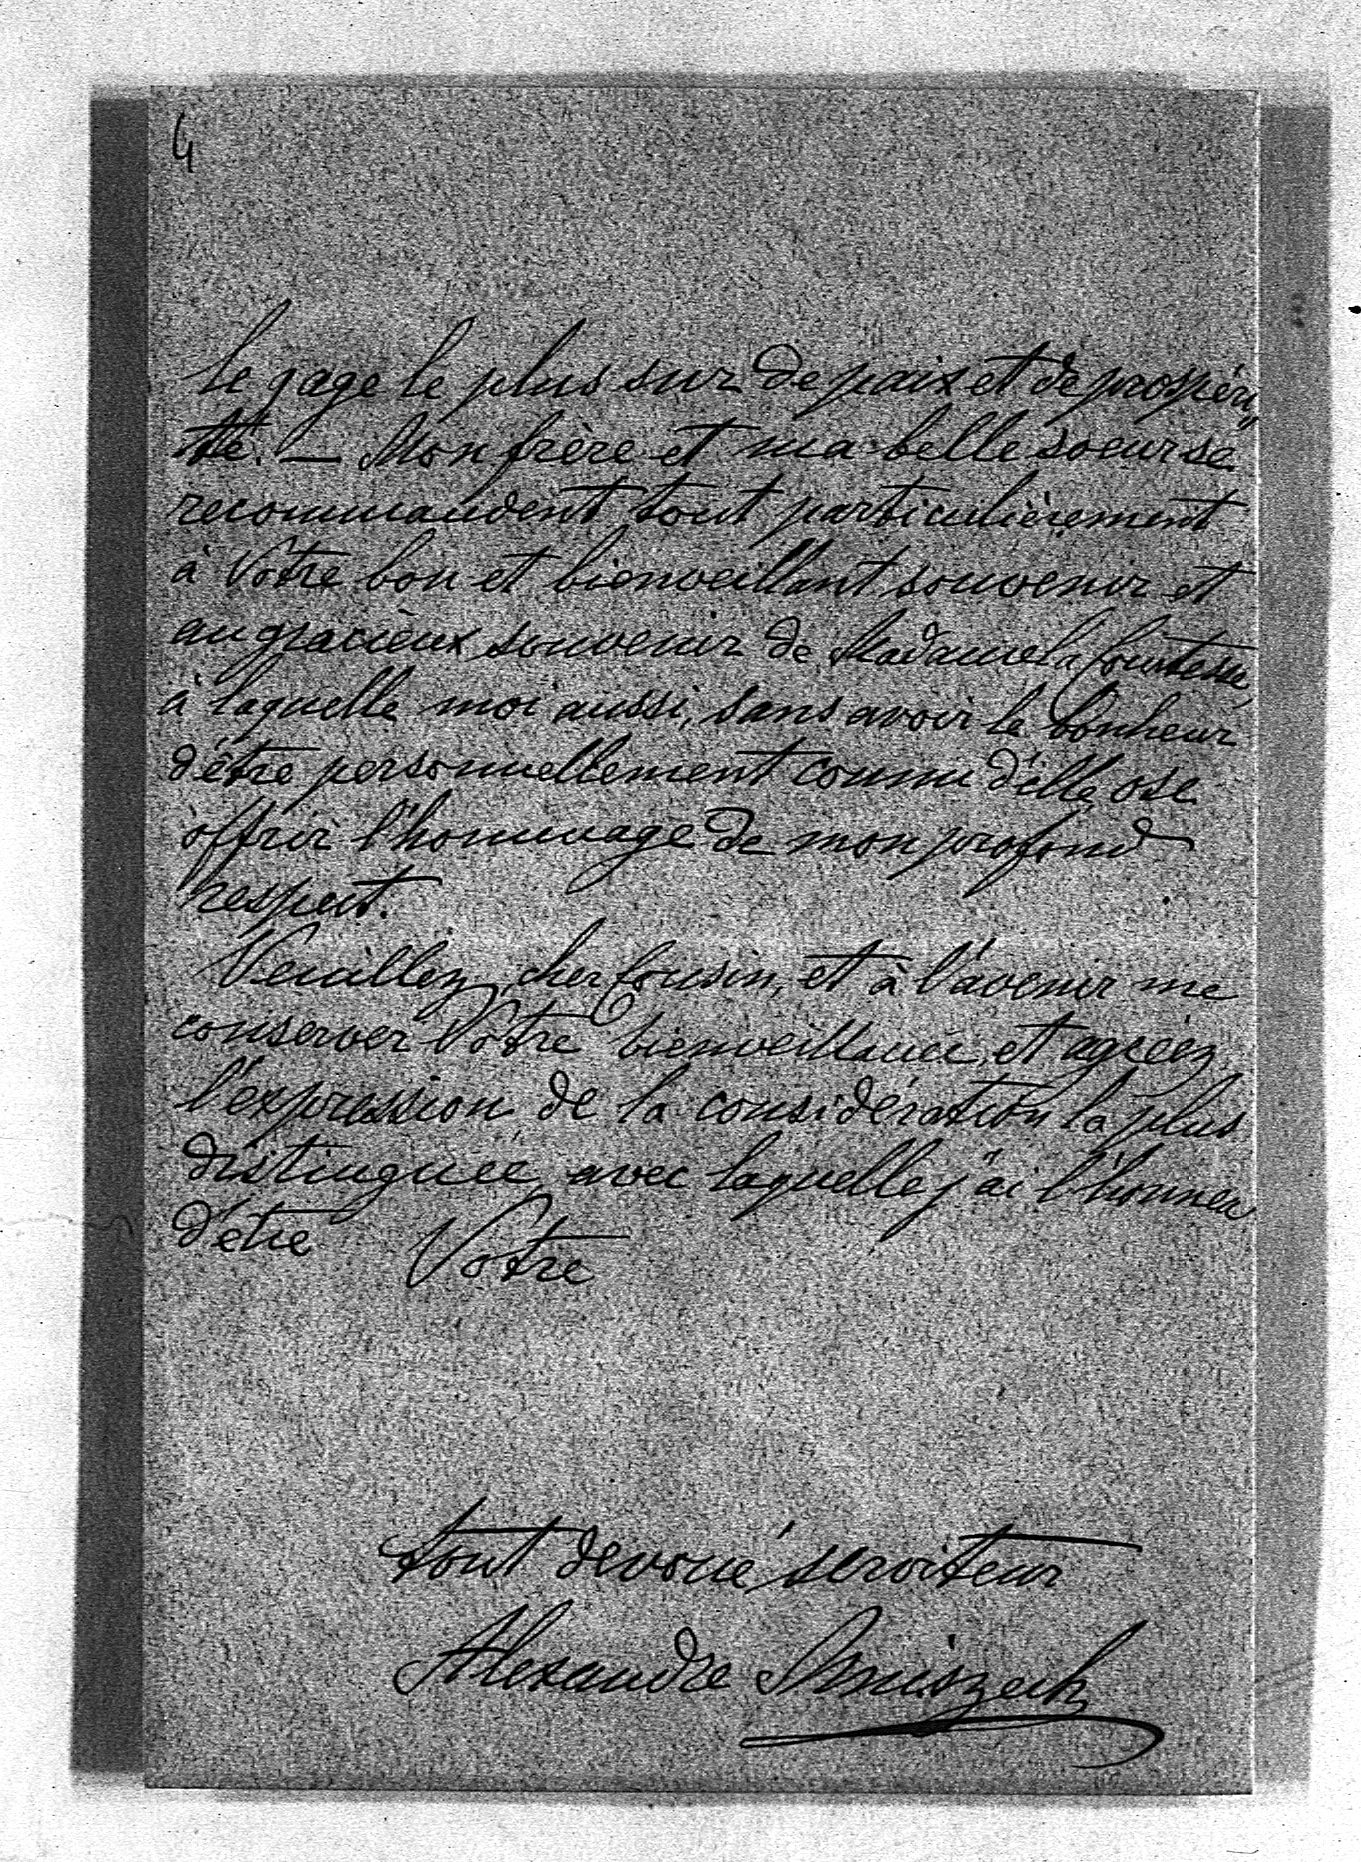 4
le gage le plus sur de paix et de prospéri„
té. — Mon frère et ma belle soeur se
recommandent tout particulièrement
à Votre bon et bienveillant souvenir et
au gracieux souvenir de Madame la Comtesse,
à laquelle moi aussi, sans avoir le bonheur
d'être personnellement connu d'elle, ose
offrir l'hommage de mon profond
respect.
Veuillez, cher Cousin, et à l'avenir me
conserver Votre bienveillance, et agréez
l'expression de la considération la plus
distinguée, avec laquelle j'ai l'honneur
d'être Votre
tout devoué serviteur
Alexandre Mniszech